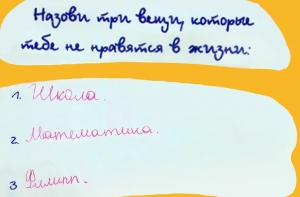 Назови три вещи, которые
тебе не нравятся в жизни:
1. Школа.
2. Математика.
3 Филипп.